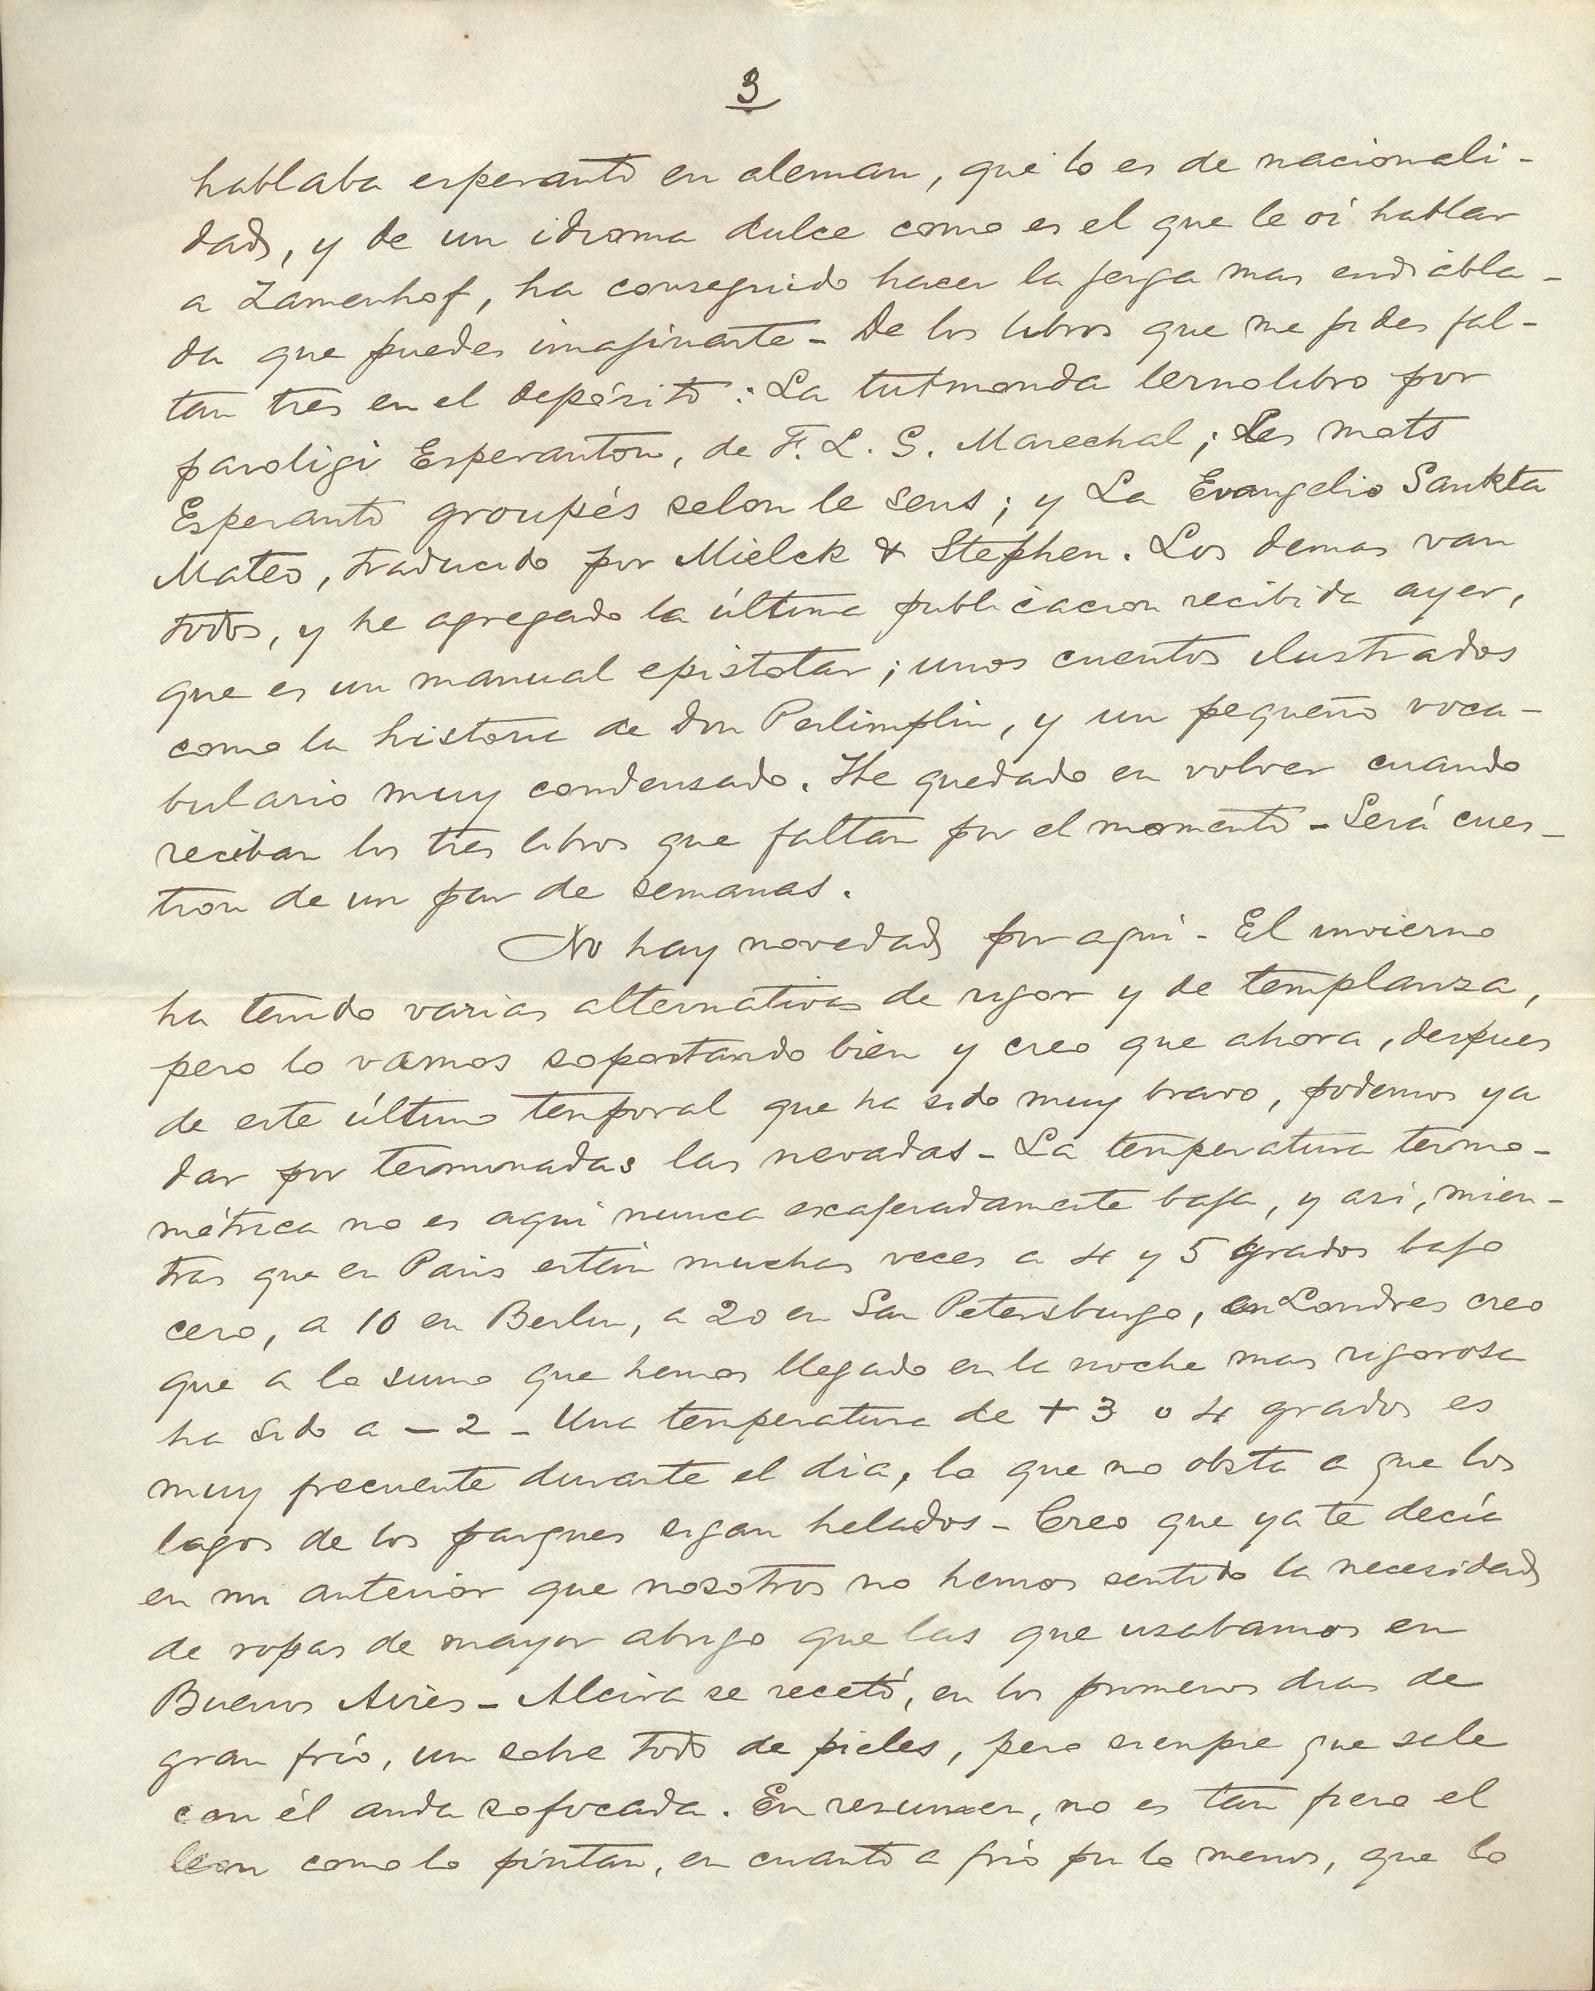 3
hablaba esperanto en aleman, que lo es de nacionali-
dad, y de un idioma dulce como es el que le oí hablar
a Zamenhof, ha conseguido hacer la jerga mas endiabla-
da que puedes imajinarte - De los libros que me pides fal-
tan tres en el depósito: La tutmonda lernolibro por
paroligi Esperanton, de F. L. G. Marechal; Les mots
Esperanto groupés selon le sens; y La Evangelio Sankta
Mateo, traducido por Mielck & Stephen. Los demas van
todos, y he agregado la última publicacion recibida ayer,
que es un manual epistolar; unos cuentos ilustrados
como la historia de Don Perlimplin, y un pequeño voca-
bulario muy condensado. He quedado en volver cuando
reciban los tres libros que faltan por el momento - Será cues-
tion de un par de semanas.
No hay novedad por aquí - El invierno
ha tenido varias alternativas de rigor y de templanza,
pero lo vamos soportando bien y creo que ahora, despues
de este último temporal que ha sido muy bravo, podemos ya
dar por terminadas las nevadas - La temperatura termo-
métrica no es aquí nunca exajeradamente baja, y así, mien-
tras que en Paris están muchas veces a 4 y 5 grados bajo
cero, a 10 en Berlin, a 20 en San Petersburgo, en Londres creo
que a lo sumo que hemos llegado en la noche mas rigorosa
ha sido a - 2 - Una temperatura de + 3 o 4 grados es
muy frecuente durante el dia, lo que no obsta a que los
lagos de los parques sigan helados - Creo que ya te decía
en mi anterior que nosotros no hemos sentido la necesidad
de ropas de mayor abrigo que las que usabamos en
Buenos Aires - Alcira se recetó, en los primeros dias de
gran frío, un sobre todo de pieles, pero siempre que sale
con él anda sofocada. En resumen, no es tan fiero el
leon como lo pintan, en cuanto a frío por lo menos, que lo